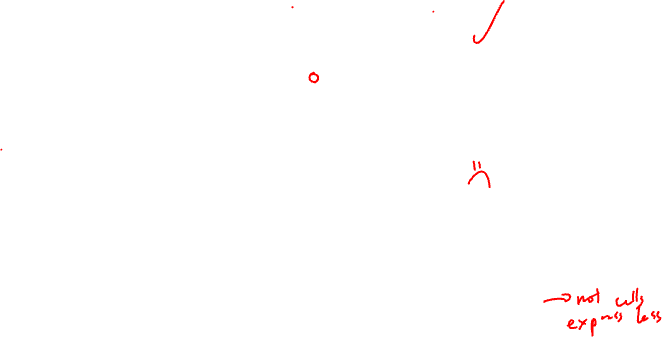 → not cells
express less